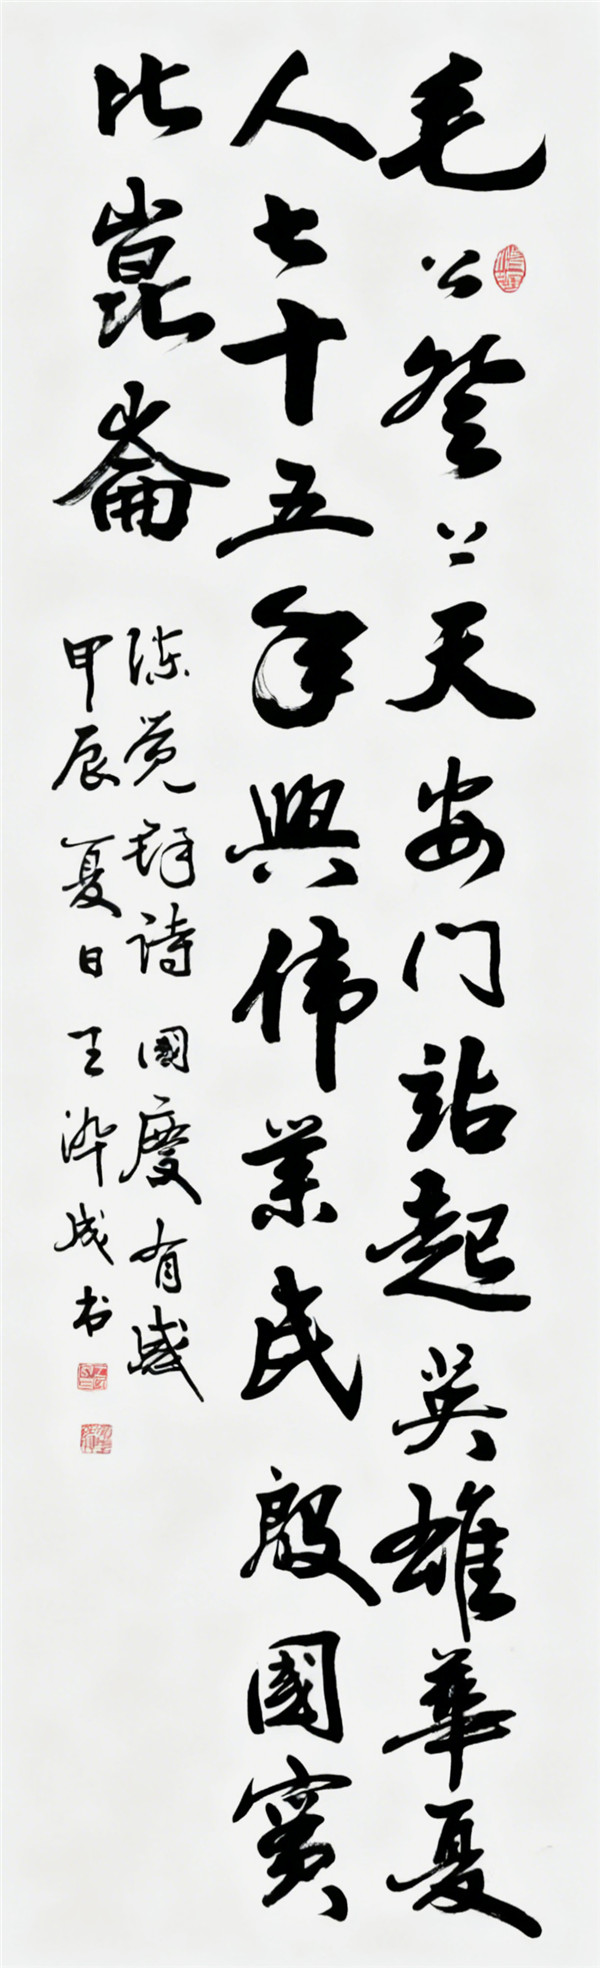 毛公登上天安门站起英雄華夏
人七十五年興伟業民殷國實
比崑崙
陈觉诗 國慶有感
甲辰夏日 王成书